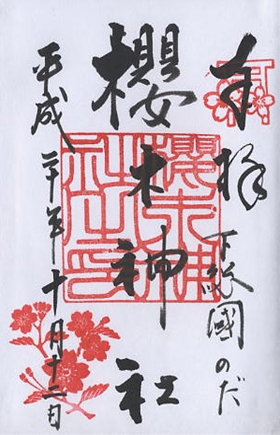 奉拝
下総國のだ
櫻木神社
平成二十年十月十二日
櫻木神社之印